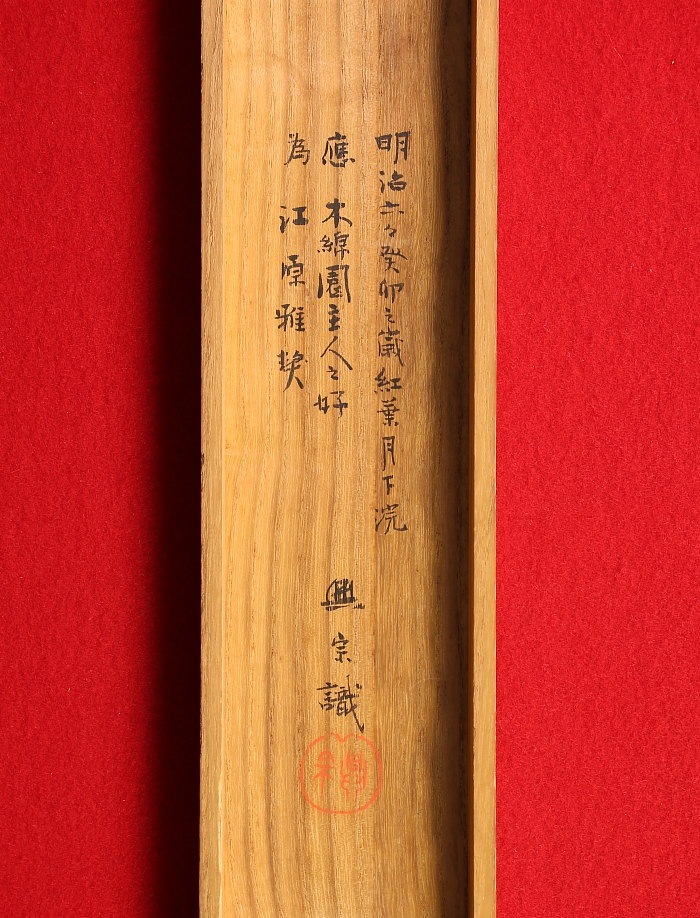 明治六々癸卯之歳紅葉月下浣
應 木綿園主人之好
為 江原雅
興宗識